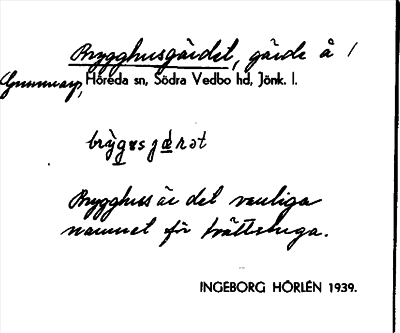 Brygghusgärdet, gärde å /
Gummarp, Höreda sn, Södra Vedbo hd, Jönk. l.
Brygghus är det vanliga
namnet för tvättstuga.
INGEBORG HÖRLÉN 1939.